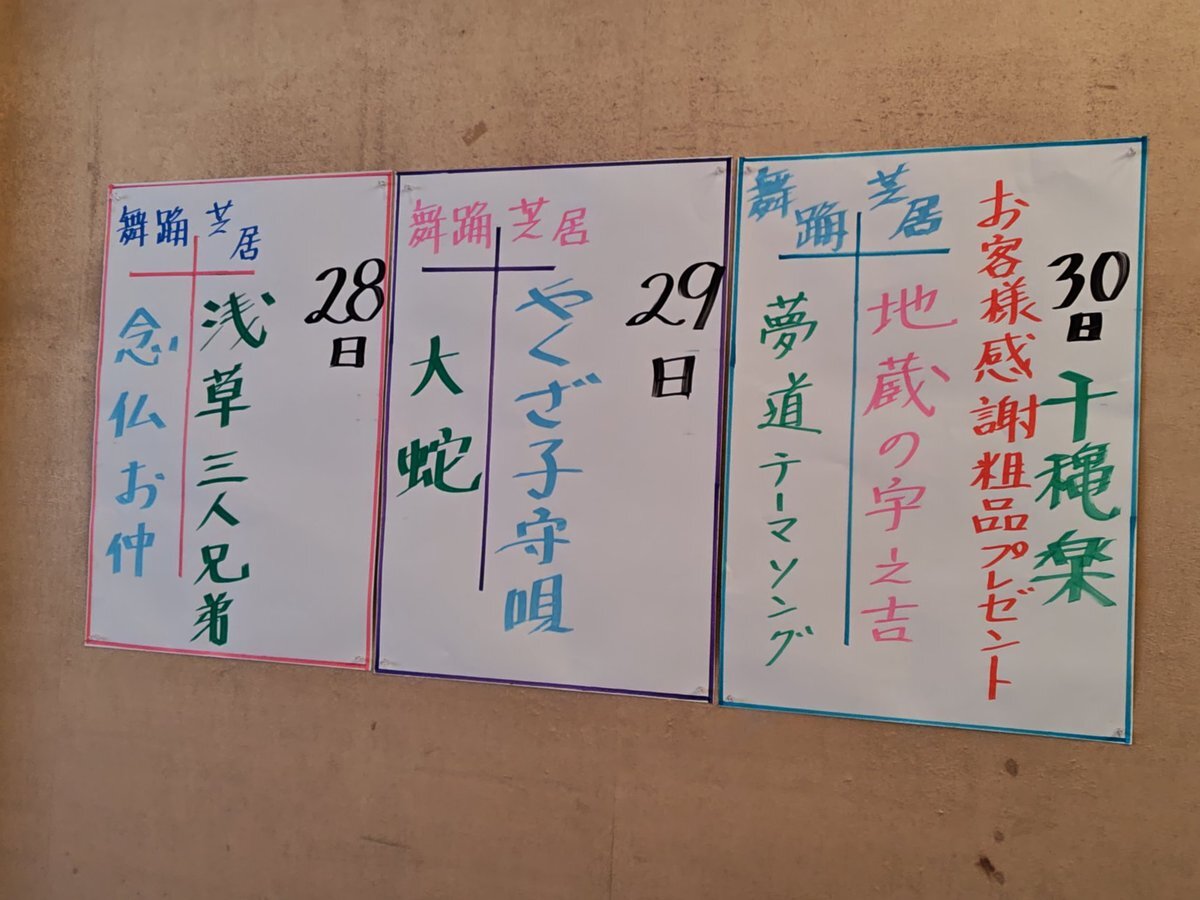 28日
芝居
浅草三人兄弟
舞踊
念仏お仲
29日
芝居
やくざ子守唄
舞踊
大蛇
30日 千穐楽
お客様感謝粗品プレゼント
芝居
地蔵の宇之吉
舞踊
夢道テーマソング